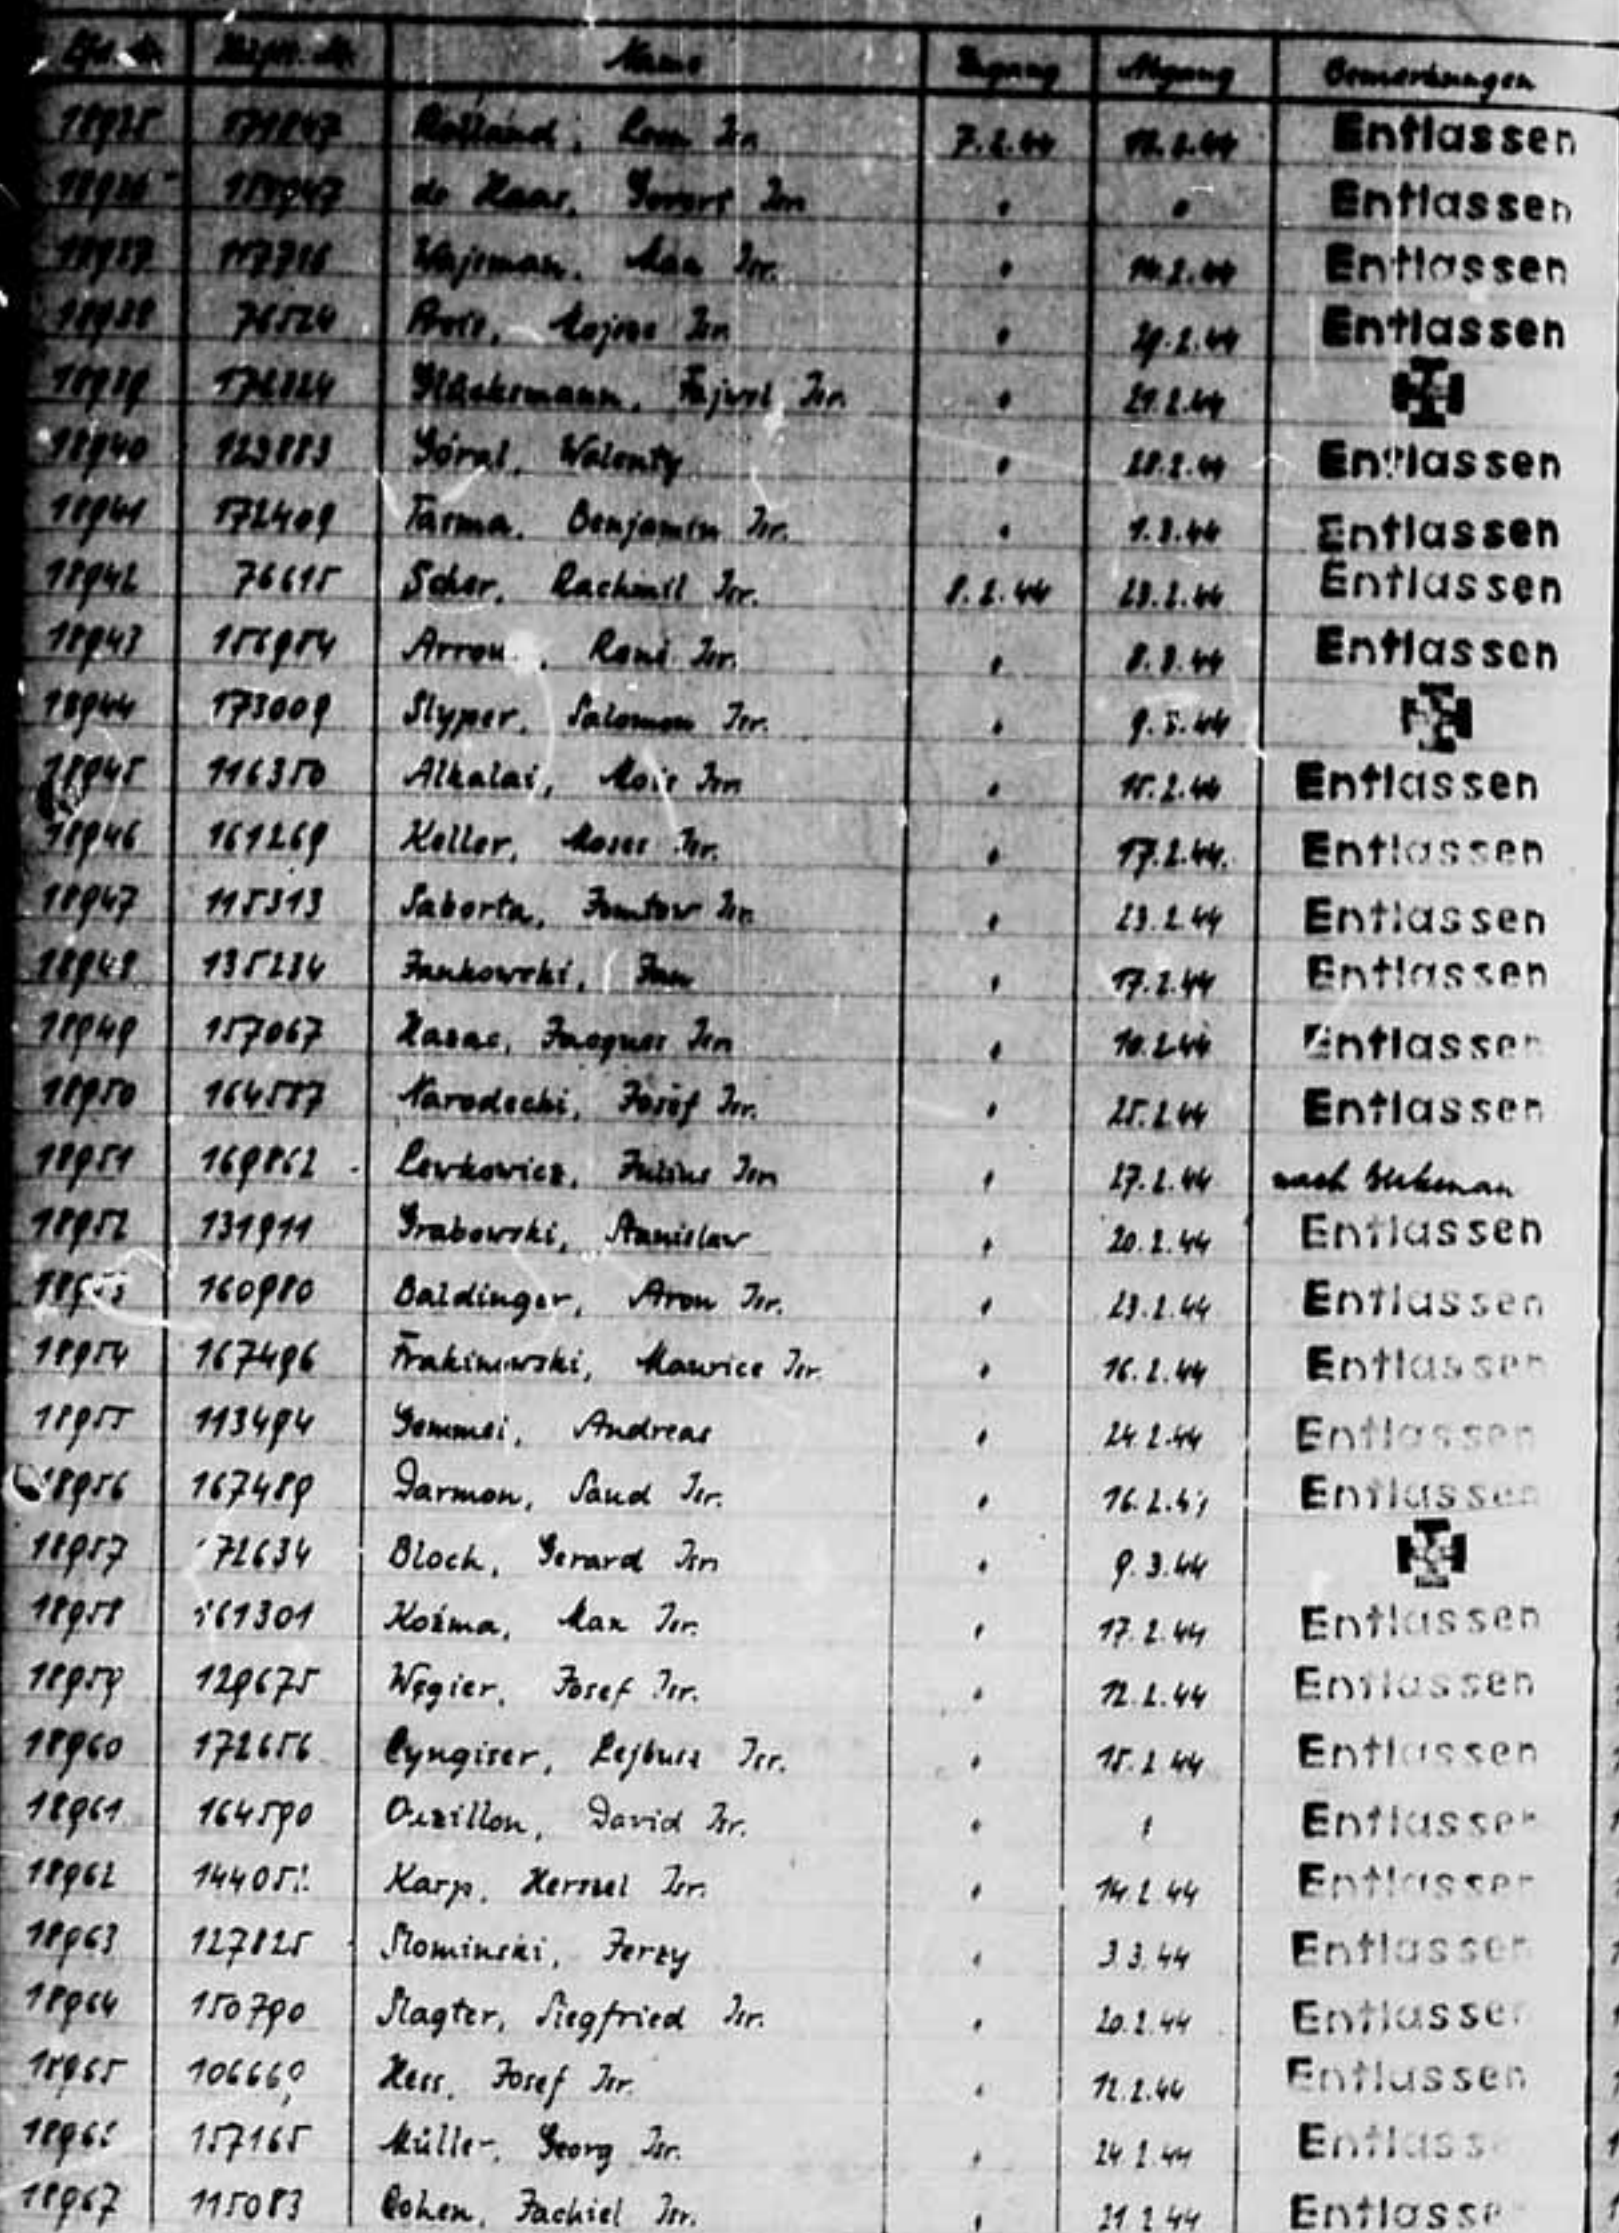 Lfd. Nr. Häftl. Nr. Name Zugang Abgang Bemerkungen
18935 171847 Isr. 7.2.44 12.2.44 Entlassen
18936 de Haas, Isr. " " Entlassen
18937 Wajsman, Max Isr. " 14.2.44 Entlassen
18938 76524 Isr. " 29.2.44 Entlassen
18939 172824 Glücksmann, Fajwel Isr. " 21.2.44
18940 123883 Góral, Walenty " 28.2.44 Entlassen
18941 172409 Benjamin Isr. " 1.3.44 Entlassen
18942 76615 Scher, Rachmil Isr. 8.2.44 23.2.44 Entlassen
18943 156954 René Isr. " 8.3.44 Entlassen
18944 173009 Slyper, Salomon Isr. "
18945 116350 Alkalai, Mois Isr. " 15.2.44 Entlassen
18946 161269 Keller, Moses Isr. " 17.2.44. Entlassen
18947 115313 Saborta, Jomtow Isr. " 23.2.44 Entlassen
18948 135234 Jankowski, Jan " 17.2.44 Entlassen
18949 157067 Jacques Isr. " 10.2.44 Entlassen
18950 164587 Narodecki, Josef Isr. " 25.2.44 Entlassen
18951 169862 Lewkowicz, Julius Isr. " 27.2.44 nach Birkenau
18952 131911 Grabowski, Stanislaw " 20.2.44 Entlassen
18953 160980 Baldinger, Aron Isr. " 23.2.44 Entlassen
18954 167496 Maurice Isr. " 16.2.44 Entlassen
18955 113494 Gemmei, Andreas " 24.2.44 Entlassen
18956 167489 Darmon, Saud Isr. " 16.2.44 Entlassen
18957 172634 Bloch, Gerard Isr. " 9.3.44
18958 161301 Kožma, Max Isr. " 17.2.44 Entlassen
18959 129675 Węgier, Josef Isr. " 12.2.44 Entlassen
18960 172656 Cyngiser, Lejbus Isr. " 15.2.44 Entlassen
18961 164590 Ouzillon, David Isr. " " Entlassen
18962 Karp, Herszel Isr. " 14.2.44 Entlassen
18963 127825 Slominski, Jerzy " 3.3.44 Entlassen
18964 150790 Slagter, Siegfried Isr. " 20.2.44 Entlassen
18965 Hess, Josef Isr. " 12.2.44 Entlassen
18966 157165 Müller, Georg Isr. " 24.2.44 Entlassen
18967 115083 Cohen, Jachiel Isr. " 21.2.44 Entlassen